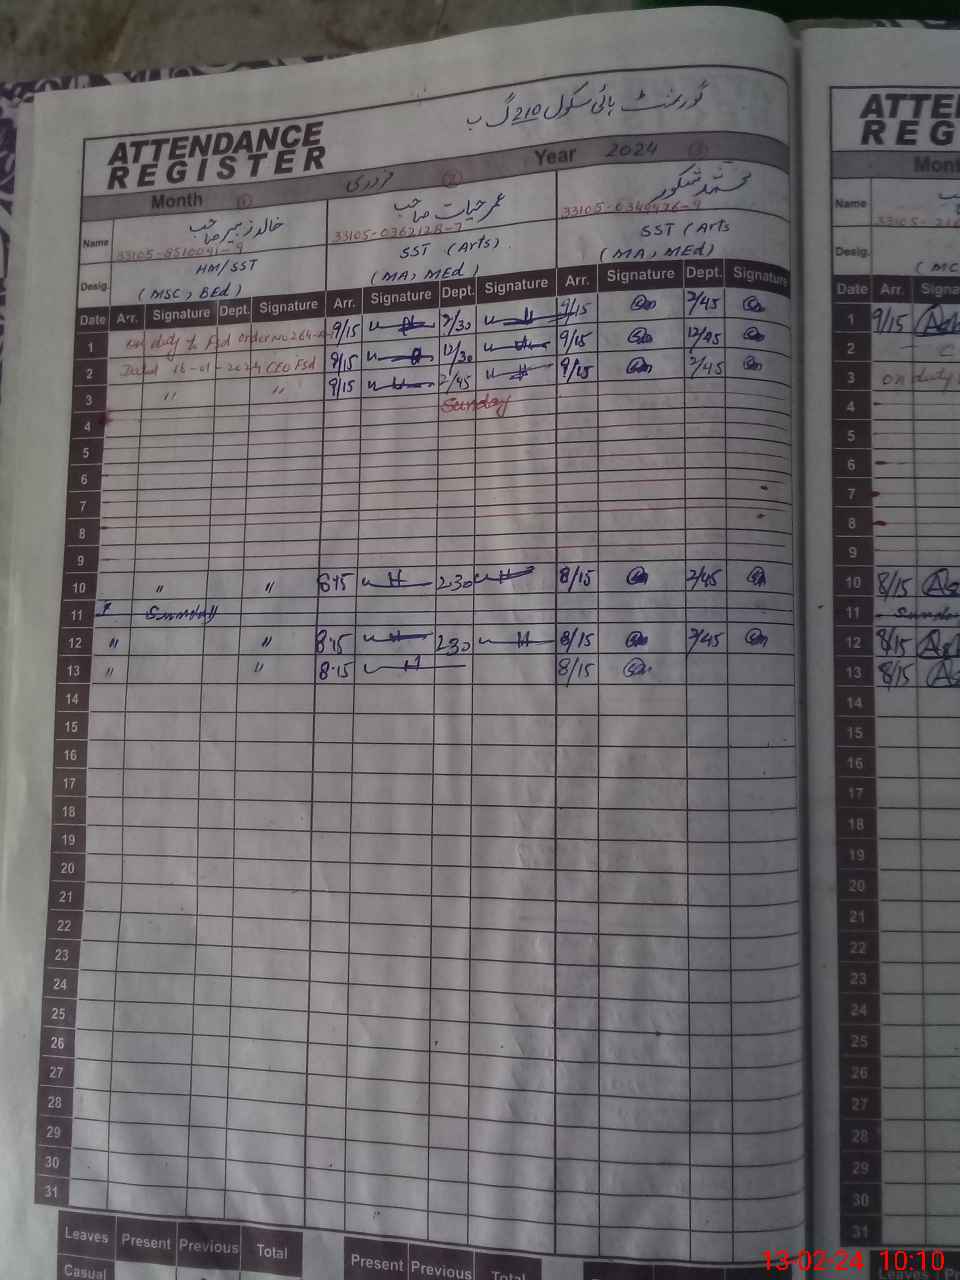 گورنمنٹ ہائی سکول 210 گ ب
ATTENDANCE
REGISTER
Month فروری Year 2024
① ② ③
Name خالد زبیر صاحب عمر حیات صاحب محمد شکور
33105-8510041-9 33105-0362128-7 33105-0340426-9
Desig. HM/SST SST (Arts) SST (Arts
(MSC, BEd) (MA, MEd) (MA, MEd)
Date Arr. Signature Dept. Signature Arr. Signature Dept. Signature Arr. Signature Dept. Signature
1 duty Fsd order No 9/15 2/30 9/15 2/45
2 Dated 16-01-2024 CEO Fsd 9/15 12/30 9/15 12/45
3 〃 〃 9/15 2/45 9/15 2/45
4 Sunday
5
6
7
8
9
10 〃 〃 8:15 2:30 8/15 2/45
11 Sunday
12 〃 〃 8:15 2:30 8/15 2/45
13 〃 〃 8:15 8/15
14
15
16
17
18
19
20
21
22
23
24
25
26
27
28
29
30
31
Leaves Present Previous Total Present Previous Total
Casual
ATTE
REG
Mont
Name
Desig.
Date Arr. Sign
1 9/15
2
3 on duty
4
5
6
7
8
9
10 8/15
11 Sunday
12 8/15
13 8/15
14
15
16
17
18
19
20
21
22
23
24
25
26
27
28
29
30
31
13-02-24 10:10